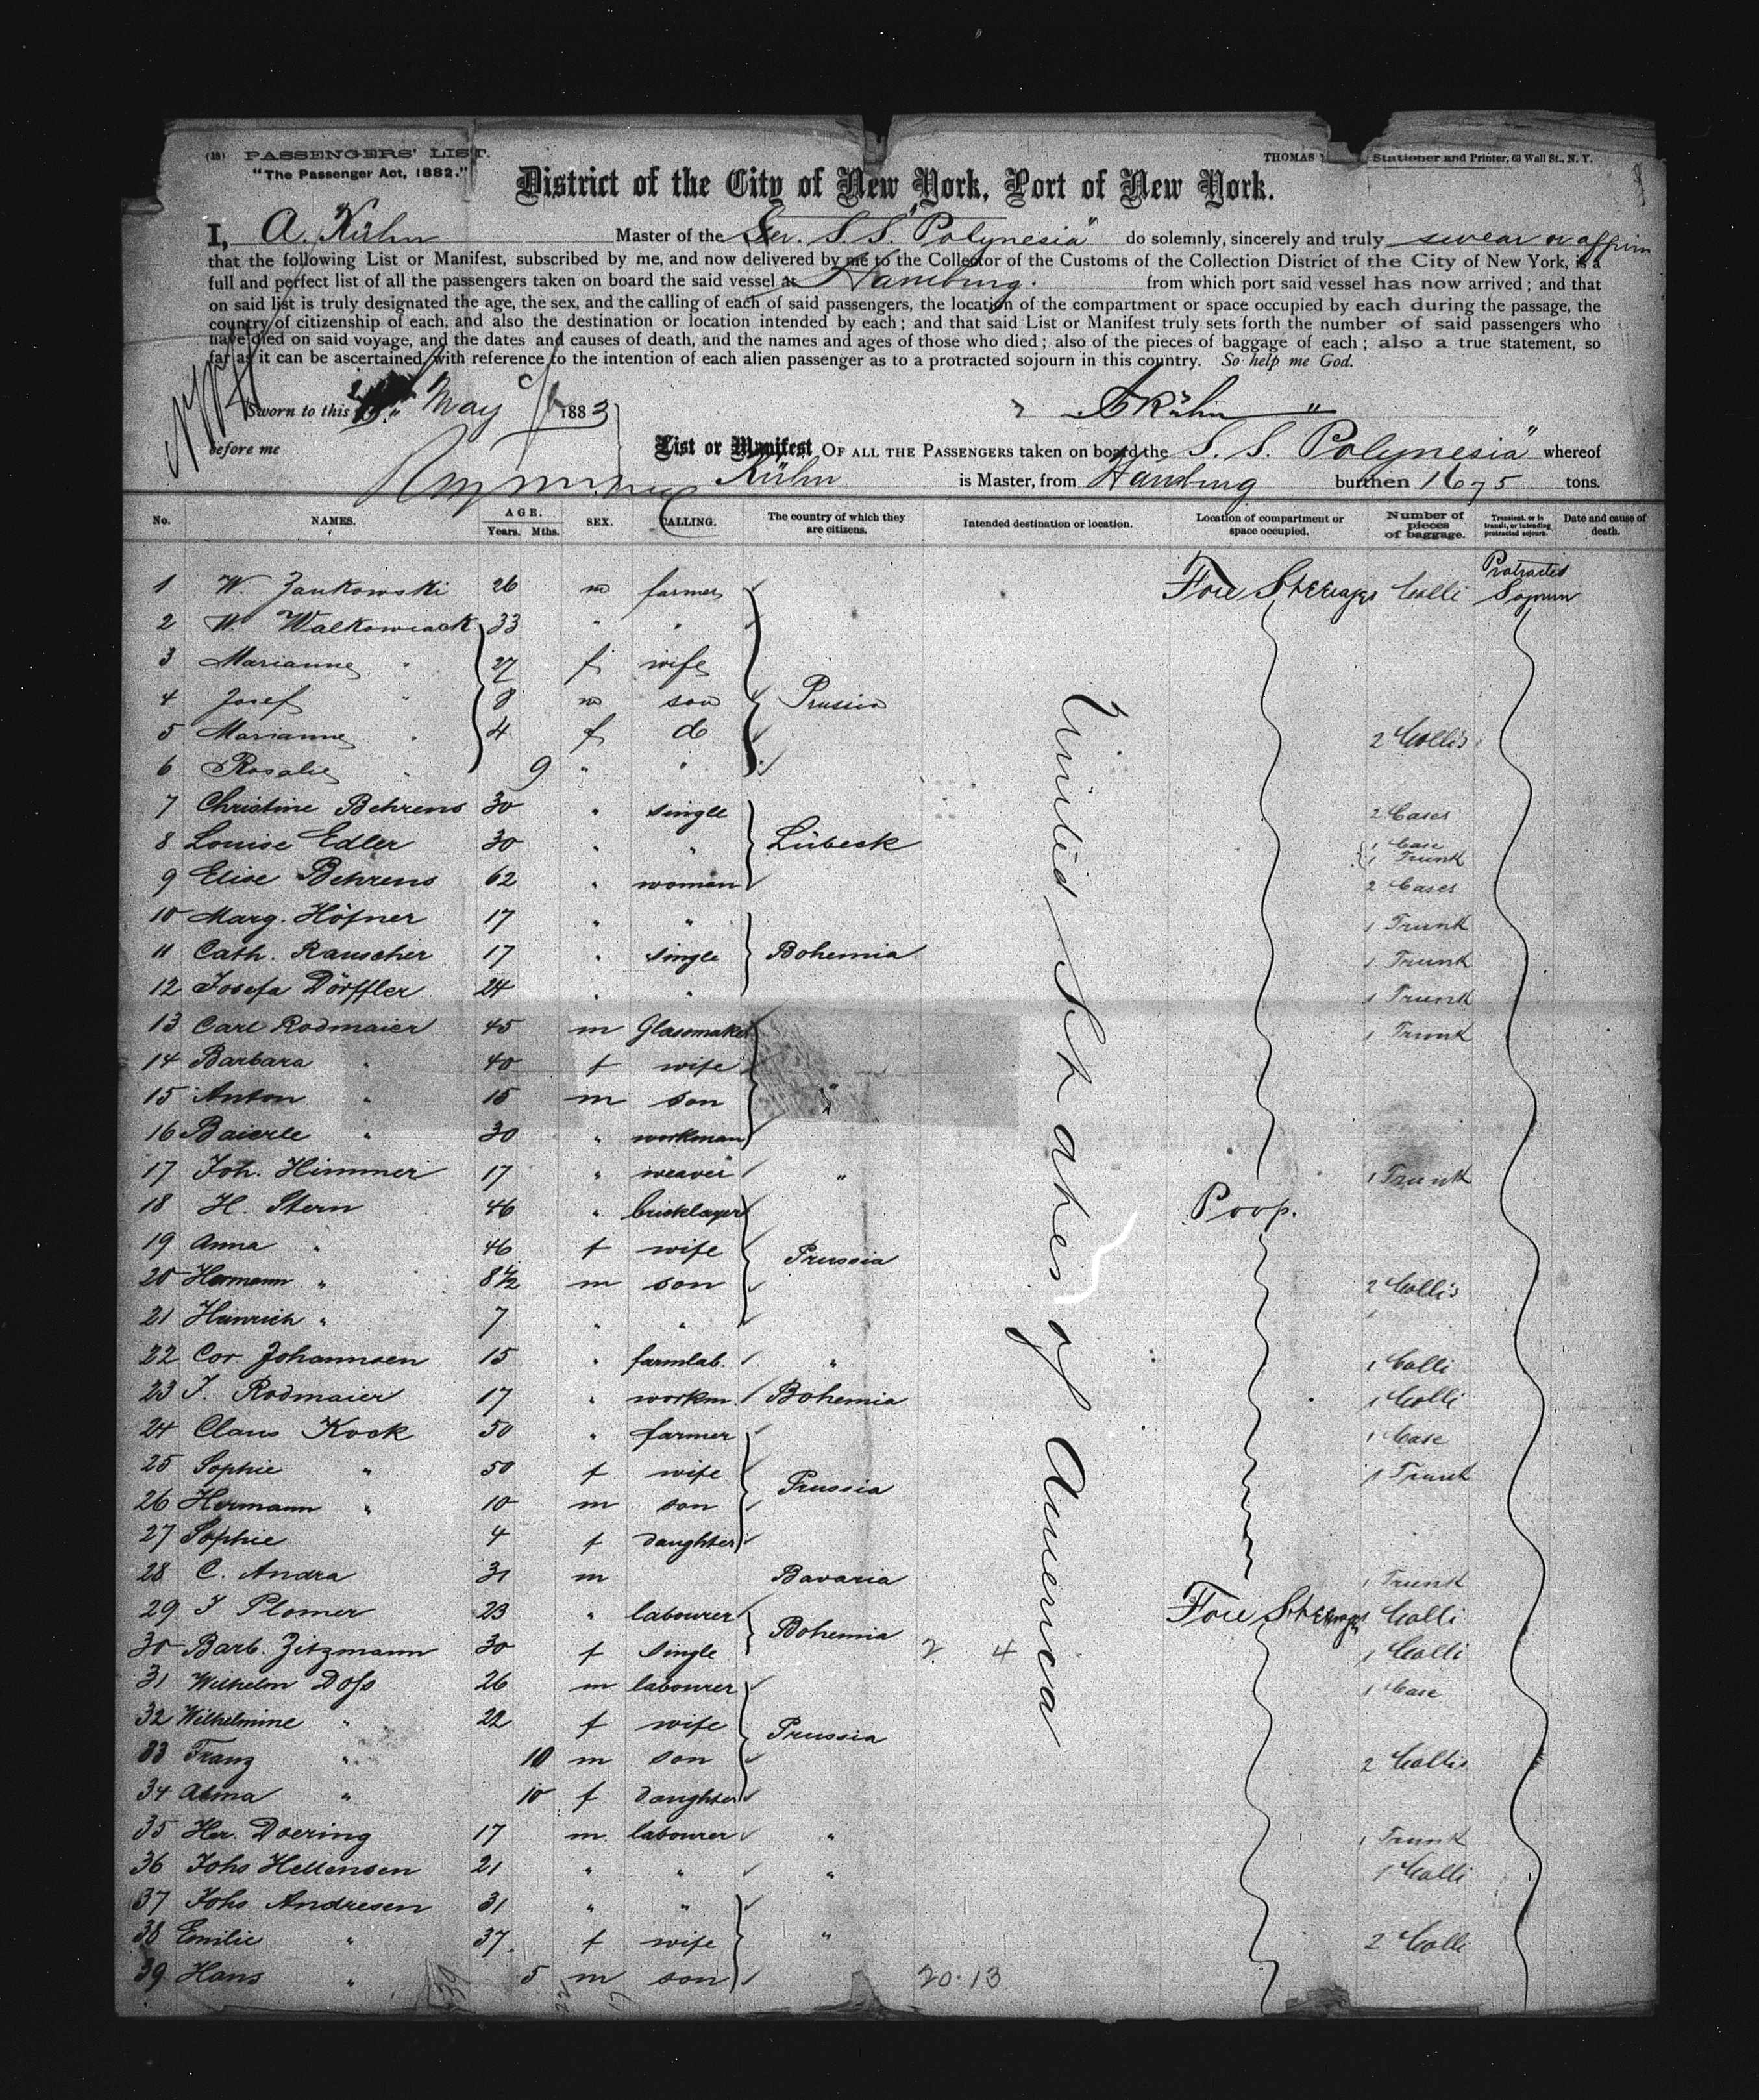 (18) PASSENGERS' LIST.
"The Passenger Act, 1882."
THOMAS Stationer and Printer, 63 Wall St., N. Y.
District of the City of New York, Port of New York.
I, A. Kühn Master of the Ger. S. S. "Polynesia" do solemnly, sincerely and truly swear or affirm
that the following List or Manifest, subscribed by me, and now delivered by me to the Collector of the Customs of the Collection District of the City of New York, is a
full and perfect list of all the passengers taken on board the said vessel at Hamburg. from which port said vessel has now arrived; and that
on said list is truly designated the age, the sex, and the calling of each of said passengers, the location of the compartment or space occupied by each during the passage, the
country of citizenship of each, and also the destination or location intended by each; and that said List or Manifest truly sets forth the number of said passengers who
have died on said voyage, and the dates and causes of death, and the names and ages of those who died; also of the pieces of baggage of each; also a true statement, so
far as it can be ascertained, with reference to the intention of each alien passenger as to a protracted sojourn in this country. So help me God.
Sworn to this May 1883
A Kühn
before me
List or Manifest OF ALL THE PASSENGERS taken on board the S. S. Polynesia" whereof
Kühn is Master, from Hamburg burthen 1675 tons.
No. NAMES. AGE. Years. Mths. SEX. CALLING. The country of which they are citizens. Intended destination or location. Location of compartment or space occupied. Number of pieces of baggage. Transient, or in transit, or intending protracted sojourn. Date and cause of death.
1 W. Zankowski 26 m farmer Fore Steerage Colli Protracted Sojourn
2 W. Walkowiack 33 " "
3 Marianne " 27 f wife
4 Josef " 8 m son Prussia
5 Marianne " 4 f do 2 Collis
6 Rosalie " 9 " "
7 Christine Behrens 30 " single 2 Cases
8 Louise Edler 30 " " Lübeck 1 Case 1 Trunk
9 Elise Behrens 62 " woman 2 Cases
10 Marg. Höfner 17 " " 1 Trunk
11 Cath. Rauscher 17 " single Bohemia 1 Trunk
12 Josefa Dörffler 24 " " 1 Trunk
13 Carl Rodmaier 45 m Glasmaker 1 Trunk
14 Barbara " 40 f wife
15 Anton " 15 m son "
16 Baierle " 30 " workman
17 Joh. Himmer 17 " weaver " 1 Trunk
18 H. Stern 46 " bricklayer Poop.
19 Anna " 46 f wife Prussia
20 Hermann " 8 1/2 m son 2 Collis
21 Heinrich " 7 " "
22 Cor Johannsen 15 " farmlab. " 1 Colli
23 J. Rodmaier 17 " workm. Bohemia 1 Colli
24 Claus Kock 50 " farmer 1 Case
25 Sophie " 50 f wife Prussia 1 Trunk
26 Hermann " 10 m son
27 Sophie 4 f daughter
28 C. Andra 31 m Bavaria 1 Trunk
29 J Plomer 23 " labourer Bohemia Fore Steerage Colli
30 Barb. Zitzmann 30 f single 2 4 1 Colli
31 Wilhelm Doss 26 m labourer 1 Case
32 Wilhelmine " 22 f wife Prussia
33 Franz " 10 m son 2 Collis
34 Alma " 10 f daughter
35 Her. Doering 17 m labourer " 1 Trunk
36 Johs Hellensen 21 " " " 1 Colli
37 Johs Andresen 31 " "
38 Emilie " 37. f wife " 2 Colli
39 Hans " 5 m son 20.13
39 22 17
United States of America